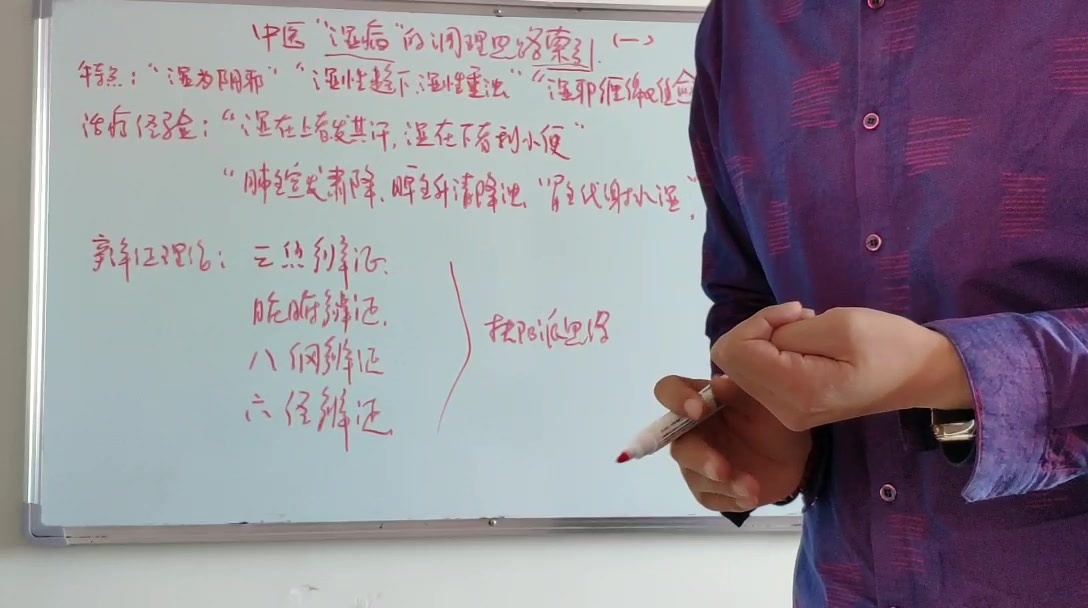 中医“湿病”的调理思路索引(一)
特点:“湿为阴邪”“湿性趋下,湿性重浊”“湿邪缠绵
治疗经验:“湿在上者发其汗,湿在下者利小便”
“肺主宣发肃降、脾主升清降浊、“肾主代谢水湿”,
辨证理论:三焦辨证、
脏腑辨证、
八纲辨证
六经辨证、
扶阳派思路